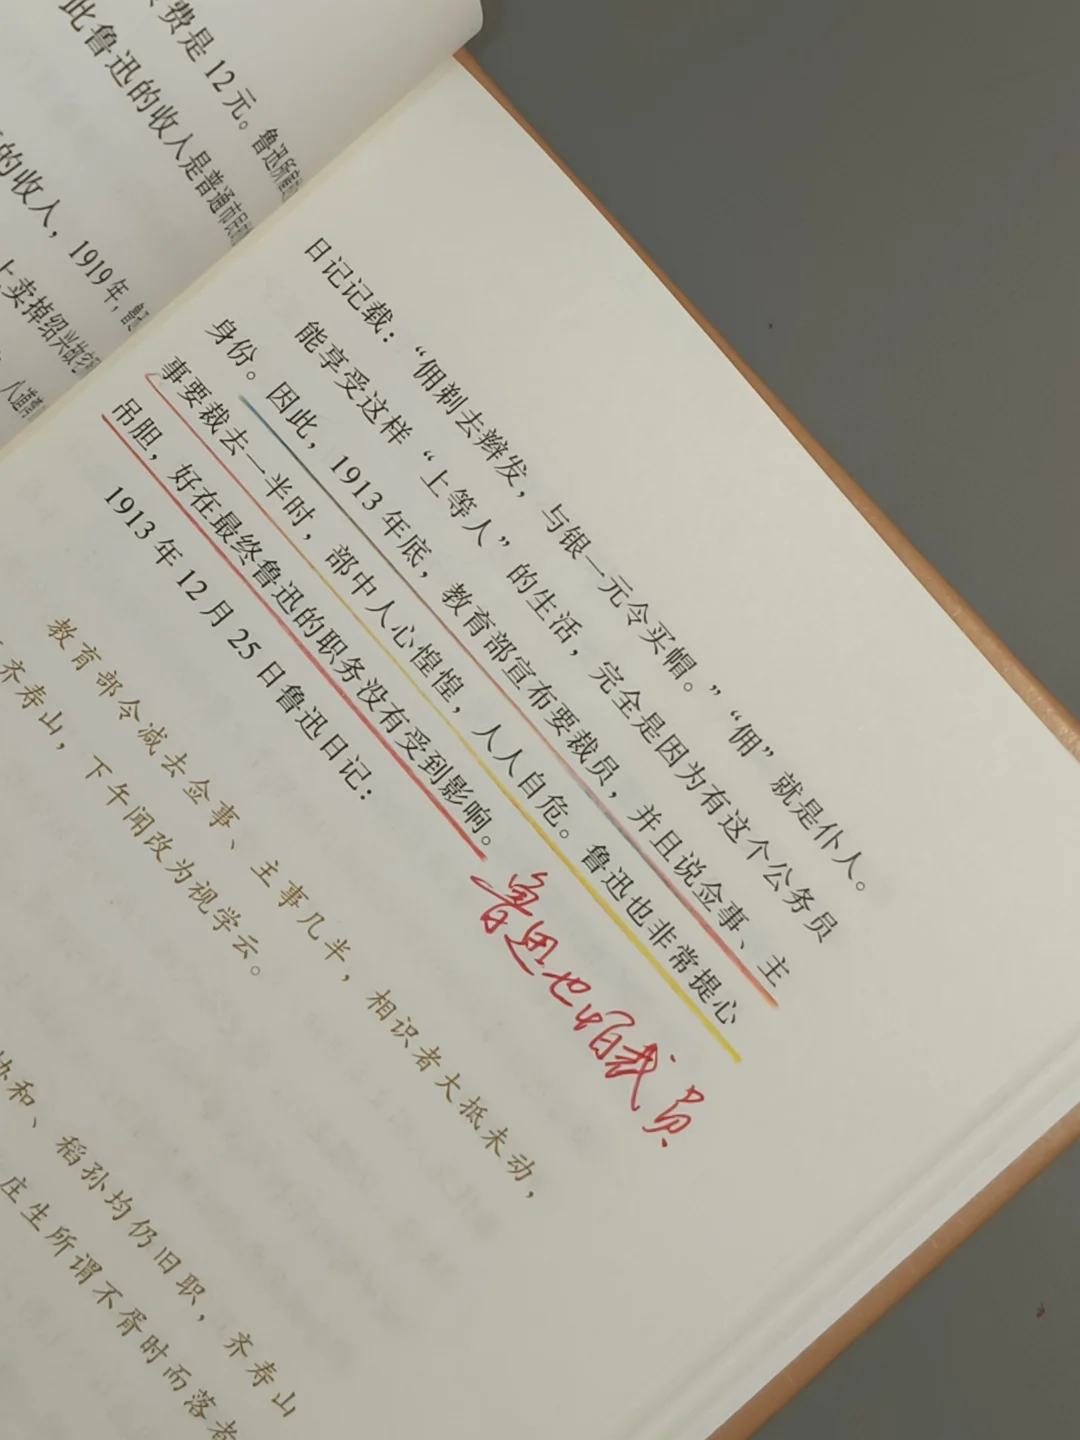 费是12元。鲁迅所
此鲁迅的收入是普通市民
的收入，1919年，
卖掉绍兴故
日记记载：“佣剃去辫发，与银一元令买帽。”“佣”就是仆人。
能享受这样“上等人”的生活，完全是因为有这个公务员
身份。因此，1913年底，教育部宣布要裁员，并且说佥事、主
事要裁去一半时，部中人心惶惶，人人自危。鲁迅也非常提心
吊胆，好在最终鲁迅的职务没有受到影响。
鲁迅也怕裁员
1913年12月25日鲁迅日记：
教育部令减去佥事、主事几半，相识者大抵未动，
齐寿山，下午闻改为视学云。
协和、稻孙均仍旧职，齐寿山
庄生所谓不胥时而落者